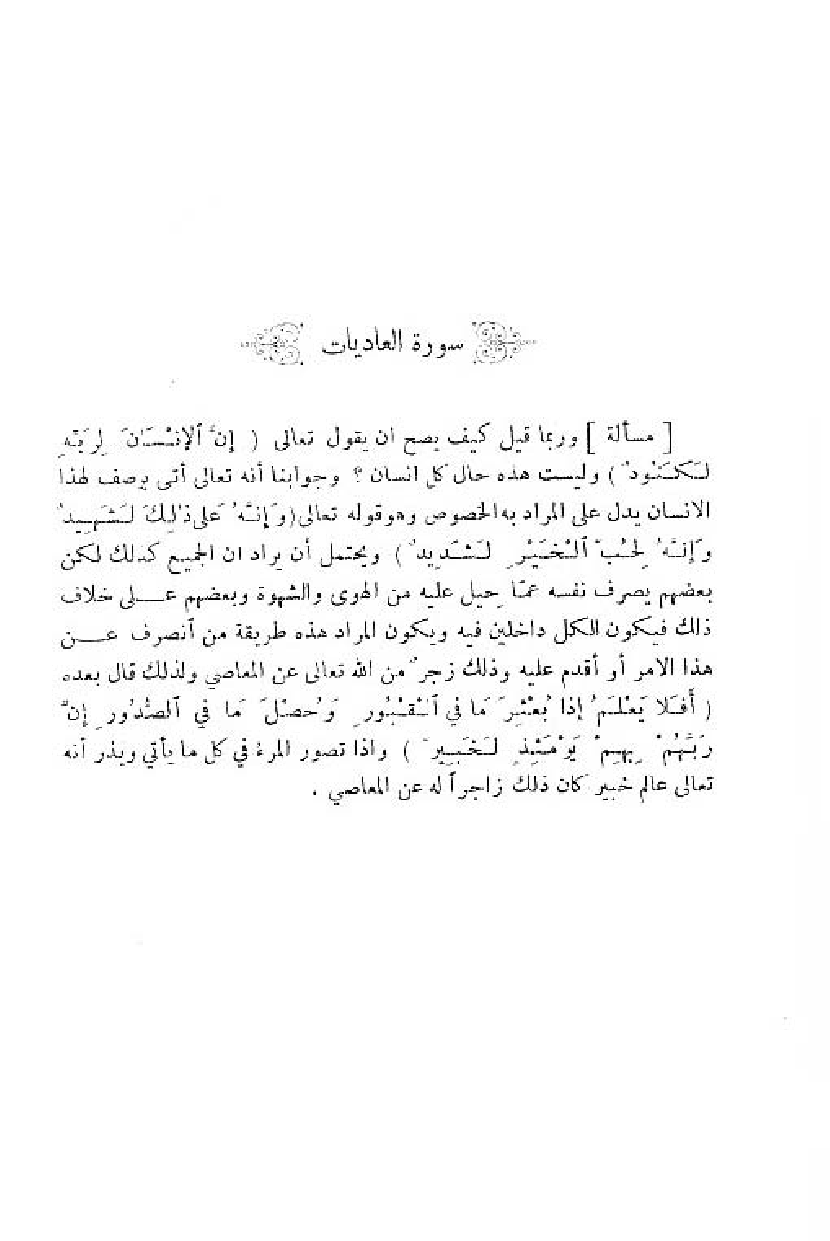 سورة العاديات
[ مسألة ] وربما قيل كيف يصح ان يقول تعالى ( إِنَّ ٱلإِنْسَانَ لِرَبِّهِ
لَكَنُودٌ ) وليست هذه حال كل انسان ؟ وجوابنا أنه تعالى أتى بوصف لهذا
الانسان يدل على المراد به الخصوص وهو قوله تعالى ( وَإِنَّهُ عَلى ذٰلِكَ لَشَهِيدٌ
وَإِنَّهُ لِحُبِّ ٱلْخَيْرِ لَشَدِيدٌ ) ويحتمل أن يراد ان الجميع كذلك لكن
بعضهم يصرف نفسه عمّا جبل عليه من الهوى والشهوة وبعضهم عـلى خلاف
ذلك فيكون الكل داخلين فيه ويكون المراد هذه طريقة من أنصرف عـن
هذا الامر أو أقدم عليه وذلك زجرٌ من الله تعالى عن المعاصي ولذلك قال بعده
( أَفَلا يَعْلَمُ إِذا بُعْثِرَ مَا فِي ٱلْقُبُورِ وَحُصِّلَ مَا فِي ٱلصُّدُورِ إِنَّ
رَبَّهُمْ بِهِمْ يَوْمَئِذٍ لَخَبِيرٌ ) واذا تصور المرءُ في كل ما يأتي ويذر أنه
تعالى عالم خبير كان ذلك زاجراً له عن المعاصي .